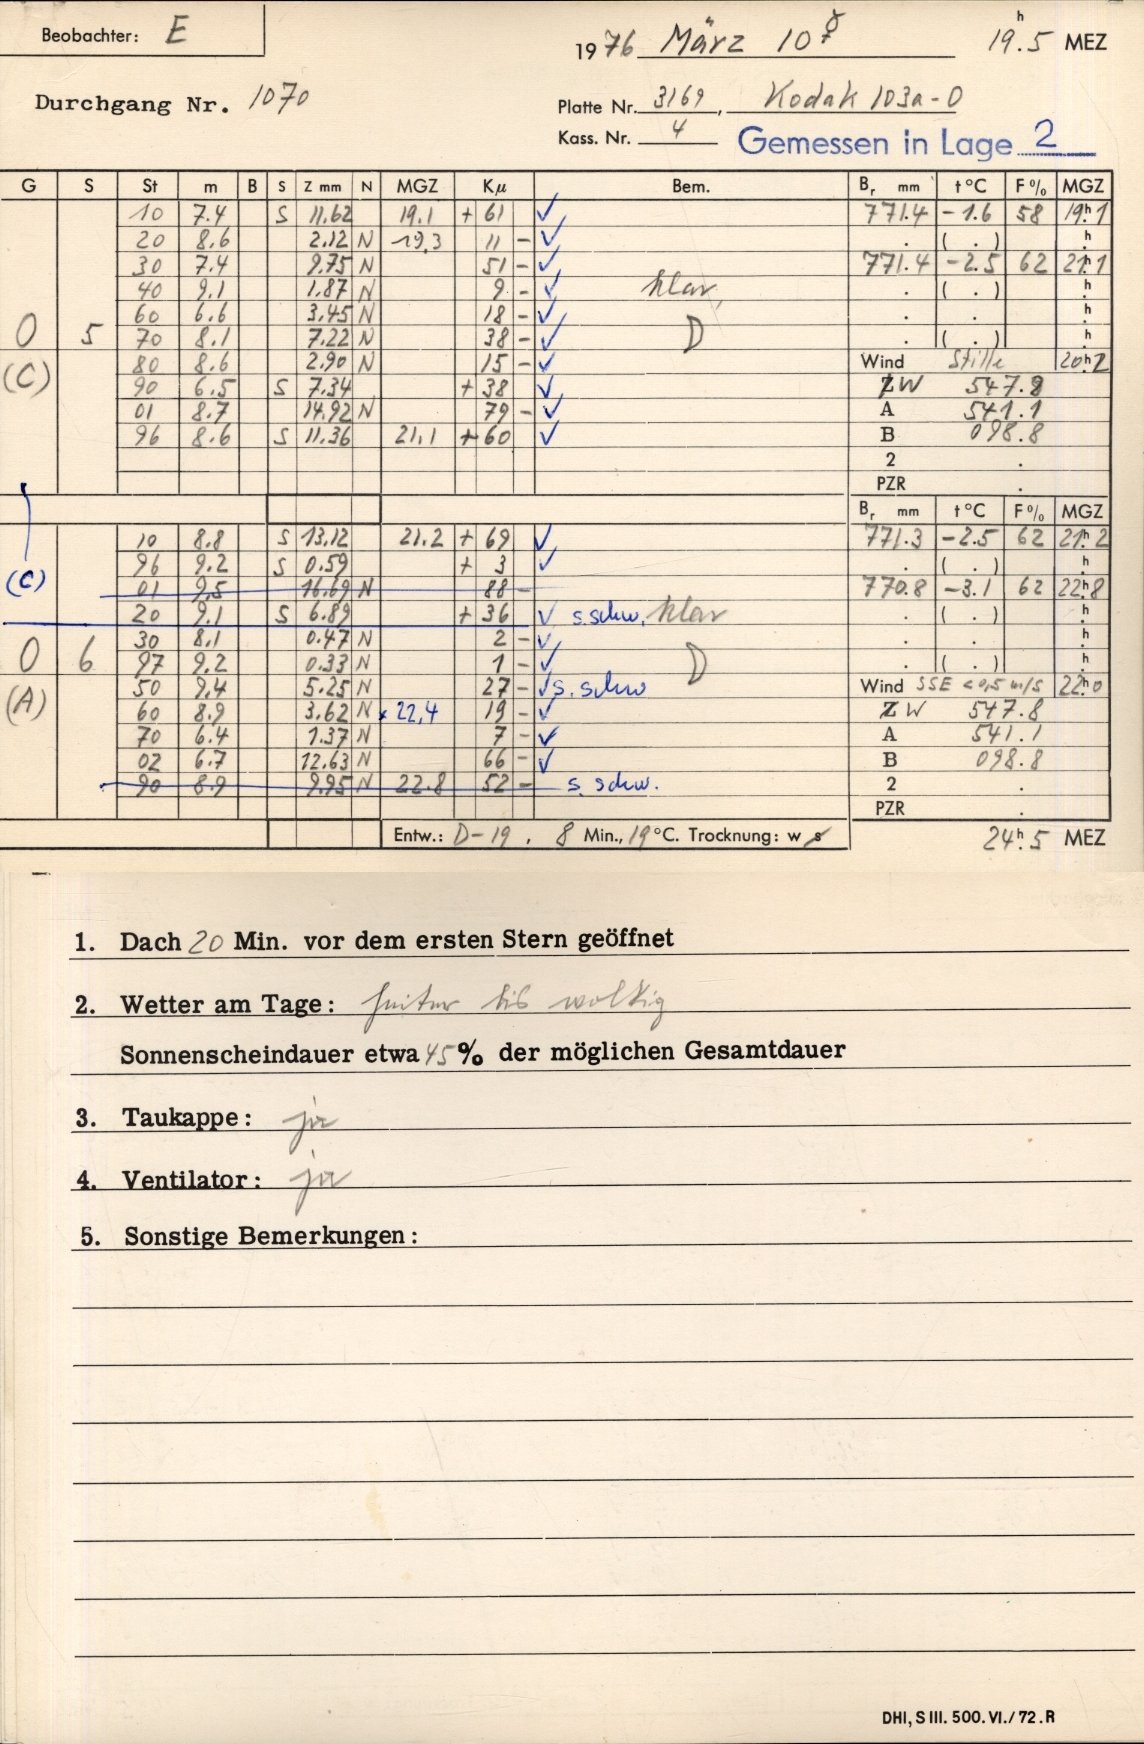 Beobachter: E
1976 März 10 ☿ 19h.5 MEZ
Durchgang Nr. 1070
Platte Nr. 3169, Kodak 103a-O
Kass. Nr. 4 Gemessen in Lage 2
G S St m B S Z mm N MGZ Kμ Bem. Br mm t°C F% MGZ
10 7.4 S 11.62 19.1 + 61 ✓ 771.4 -1.6 58 19h1
20 8.6 2.12 N 19.3 11 - ✓ . ( . ) h
30 7.4 9.75 N 51 - ✓ 771.4 -2.5 62 21h1
40 9.1 1.87 N 9 - ✓ klar . ( . ) h
60 6.6 3.45 N 18 - ✓ . . h
O 5 70 8.1 7.22 N 38 - ✓ D . ( . ) h
(C) 80 8.6 2.90 N 15 - ✓ Wind Stille 20h2
90 6.5 S 7.34 + 38 ✓ ZW 547.8
01 8.7 14.92 N 79 - ✓ A 541.1
96 8.6 S 11.36 21.1 + 60 ✓ B 098.8
2 .
PZR .
Br mm t°C F% MGZ
10 8.8 S 13.12 21.2 + 69 ✓ 771.3 -2.5 62 21h2
(C) 96 9.2 S 0.59 + 3 ✓ . ( . ) h
01 9,5 16.69 N 88 - 770.8 -3.1 62 22h8
20 9.1 S 6.89 + 36 ✓ s.schw. klar . ( . ) h
30 8.1 0.47 N 2 - ✓ . . h
O 6 97 9.2 0.33 N 1 - ✓ D . ( . ) h
(A) 50 9,4 5.25 N 27 - ✓ s. schw Wind SSE <0,5 m/s 22h0
60 8.9 3.62 N x 22,4 19 - ✓ ZW 547.8
70 6.4 1.37 N 7 - ✓ A 541.1
02 6.7 12.63 N 66 - ✓ B 098.8
90 8.9 9.95 N 22.8 52 - s. schw. 2 .
PZR .
Entw.: D-19 , 8 Min., 19 °C. Trocknung: w s 24h.5 MEZ
1. Dach 20 Min. vor dem ersten Stern geöffnet
2. Wetter am Tage: heiter bis wolkig
Sonnenscheindauer etwa 45 % der möglichen Gesamtdauer
3. Taukappe: ja
4. Ventilator: ja
5. Sonstige Bemerkungen:
DHI, S III. 500. VI./72. R